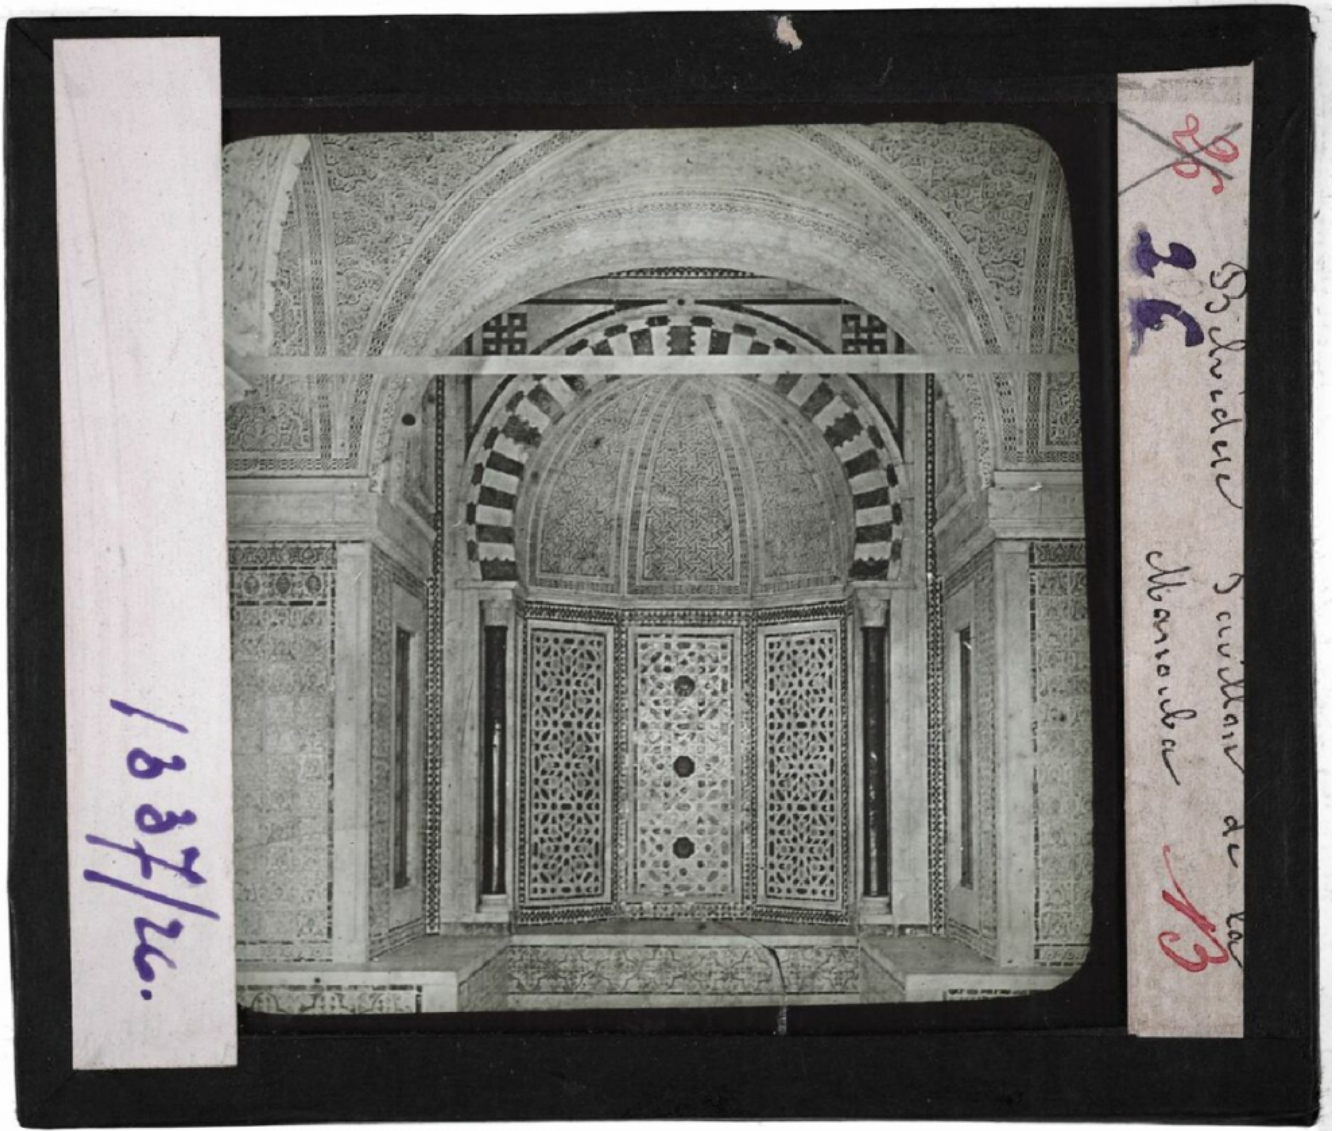 1337/26.
26
26
Belvédère Pavillon de la
Manouba
13